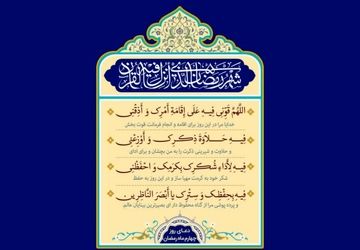 شهر رمضان الذی انزل فیه القرآن
اللَّهُمَّ قَوِّنِی فِیهِ عَلَی إِقَامَةِ أَمْرِکَ وَ أَذِقْنِی
خدایا مرا در این روز برای اقامه و انجام فرمانت قوت بخش
فِیهِ حَلَاوَةَ ذِکْرِکَ وَ أَوْزِعْنِی
و حلاوت و شیرینی ذکرت را به من بچشان و برای ادای
فِیهِ لِأَدَاءِ شُکْرِکَ بِکَرَمِکَ وَ احْفَظْنِی
شکر خود به کرمت مهیا ساز و در این روز به حفظ
فِیهِ بِحِفْظِکَ وَ سِتْرِکَ یَا أَبْصَرَ النَّاظِرِینَ
و پرده پوشی مرا از گناه محفوظ دار ای بصیرترین بینایان عالم
دعـای روز
چهارم ماه رمضان